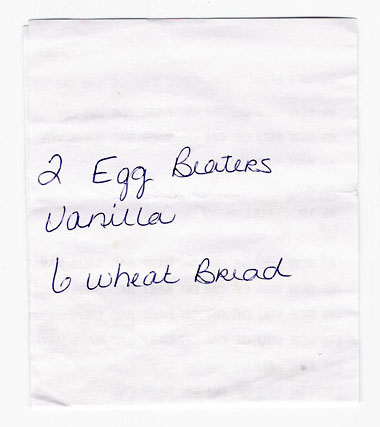 2 Egg Beaters
Vanilla
6 Wheat Bread